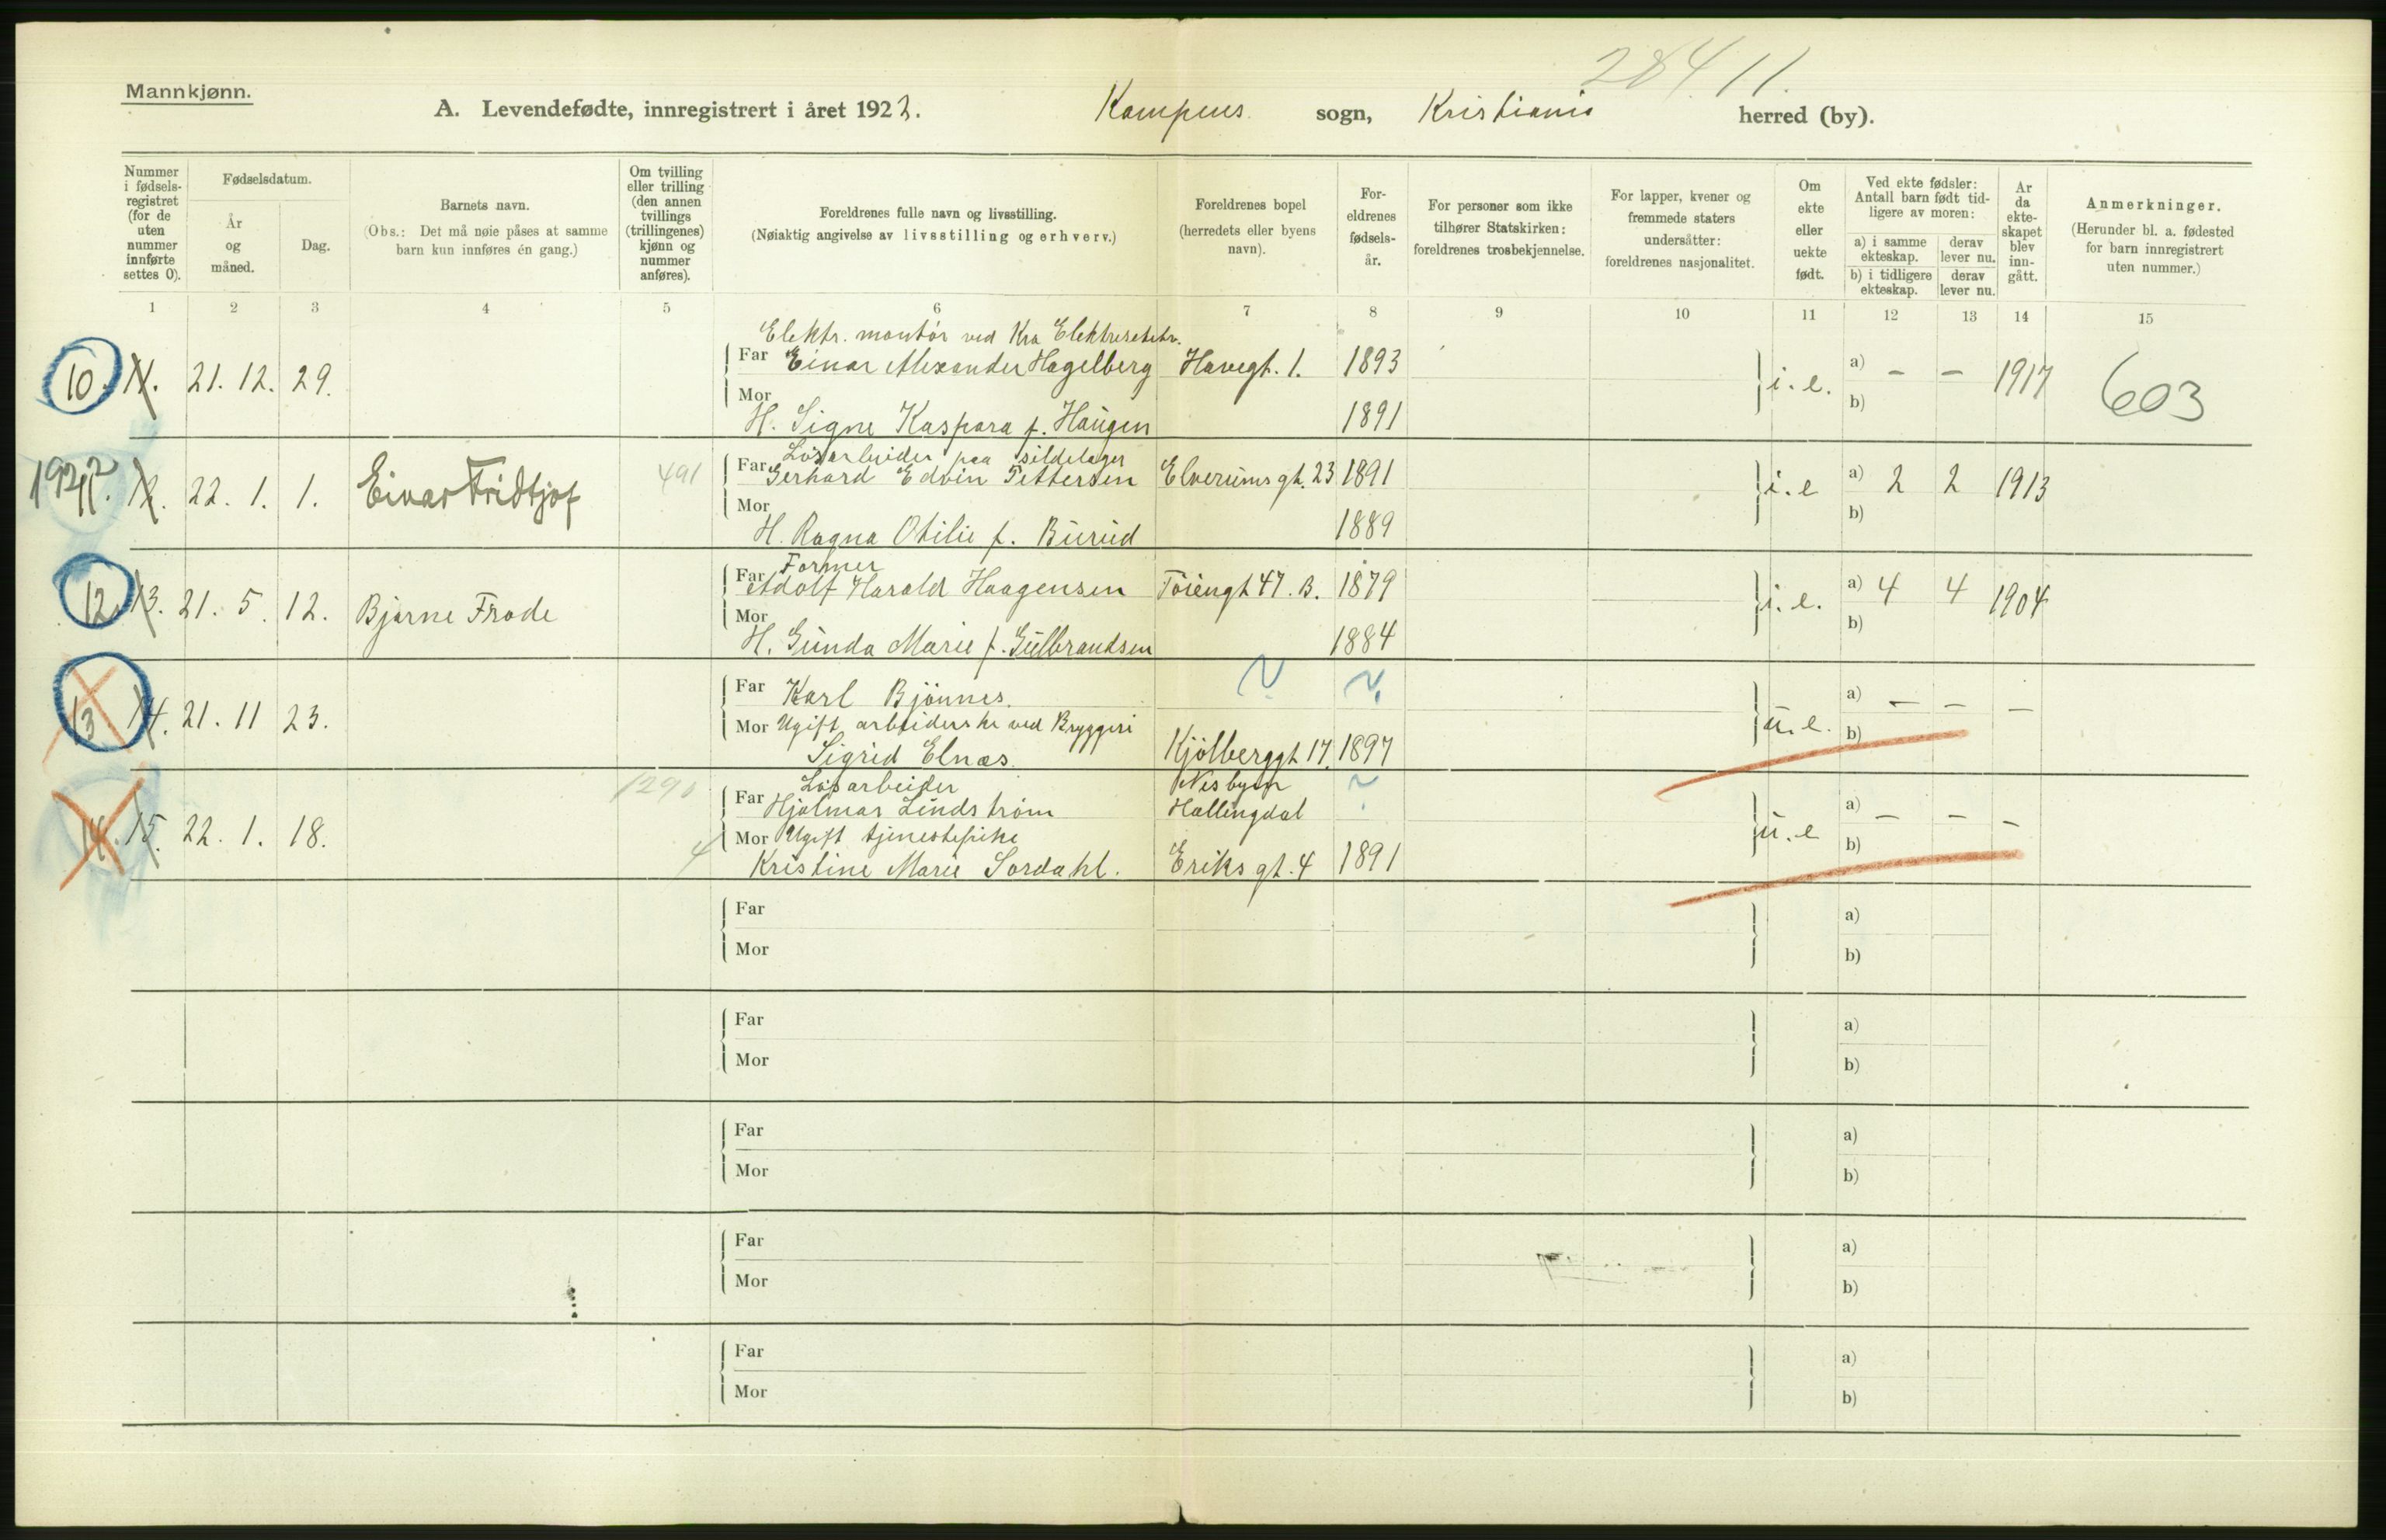 284.11.
Mannkjønn.
A. Levendefødte, innregistrert i året 1922. Kampens sogn, Kristiania herred (by).
Nummer i fødselsregistret (for de uten nummer innførte settes 0).
Fødselsdatum.
År og måned.
Dag.
Barnets navn.
(Obs.: Det må nøie påses at samme barn kun innføres én gang.)
Om tvilling eller trilling (den annen tvillings (trillingenes) kjønn og nummer anføres).
Foreldrenes fulle navn og livsstilling.
(Nøiaktig angivelse av livsstilling og erhverv.)
Foreldrenes bopel (herredets eller byens navn).
Foreldrenes fødselsår.
For personer som ikke tilhører Statskirken: foreldrenes trosbekjennelse.
For lapper, kvener og fremmede staters undersåtter: foreldrenes nasjonalitet.
Om ekte eller uekte født.
Ved ekte fødsler: Antall barn født tidligere av moren:
a) i samme ekteskap. derav lever nu.
b) i tidligere ekteskap. derav lever nu.
År da ekteskapet blev inngått.
Anmerkninger.
(Herunder bl. a. fødested for barn innregistrert uten nummer.)
1 2 3 4 5 6 7 8 9 10 11 12 13 14 15
Elektr. montör ved Kra
10. 11. 21. 12. 29. Far Einar Alexander Hagelberg Havegt. 1. 1893 i.e. a) – – 1917 603
Mor b)
H. Signe Kaspara f. Haugen 1891
Lösarbeider paa sildelager
1922 11. 12. 22. 1. 1. Einar Fridtjof 491 Far Gerhard Edvin Pettersen Elverumsgt. 23 1891 i.e a) 2 2 1913
Mor b)
H. Ragna Otilie f. Burud 1889
Former
12. 13. 21. 5. 12. Bjarne Frode Far Adolf Harald Haagensen Töiengt 47. B. 1879 i.e. a) 4 4 1904
Mor b)
H. Gunda Marie f. Gulbrandsen 1884
13. 14. 21. 11 23. Far Karl Bjönnes. ? ? u.e. a) – – –
Mor Ugift arbeiderske ved Bryggeri b)
Sigrid Elnæs. Kjölberggt 17. 1897
1290 Lösarbeider Nesbyen ?
14. 15. 22. 1. 18. Far Hjalmar Lindström Hallingdal u.e a) – – –
4 Mor Ugift tjenestepike b)
Kristine Marie Sordahl. Eriksgt. 4 1891
Far a)
Mor b)
Far a)
Mor b)
Far a)
Mor b)
Far a)
Mor b)
Far a)
Mor b)